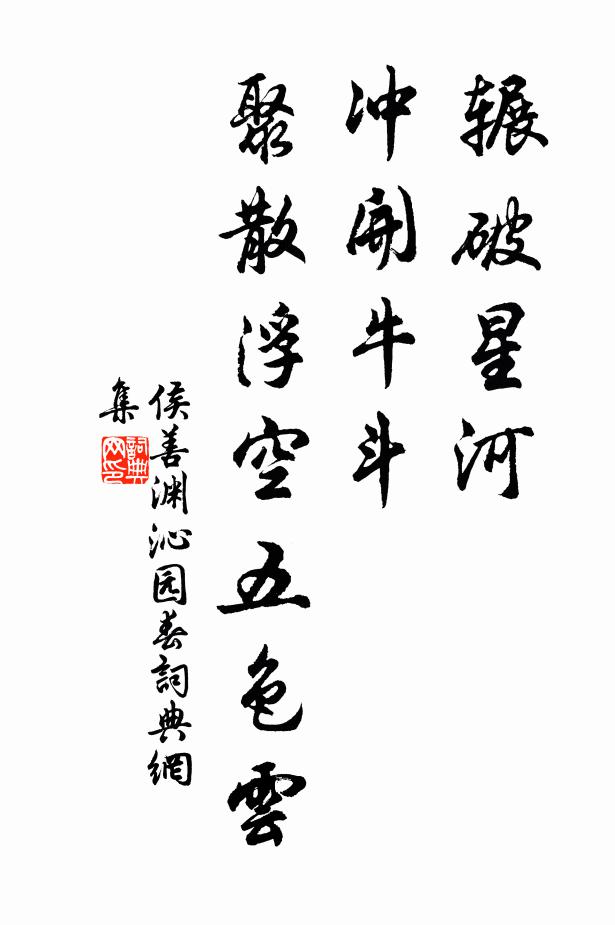 辗破星河
冲開牛斗
聚散浮空五色雲
侯善渊沁园春詞典網
集
詞典
网印